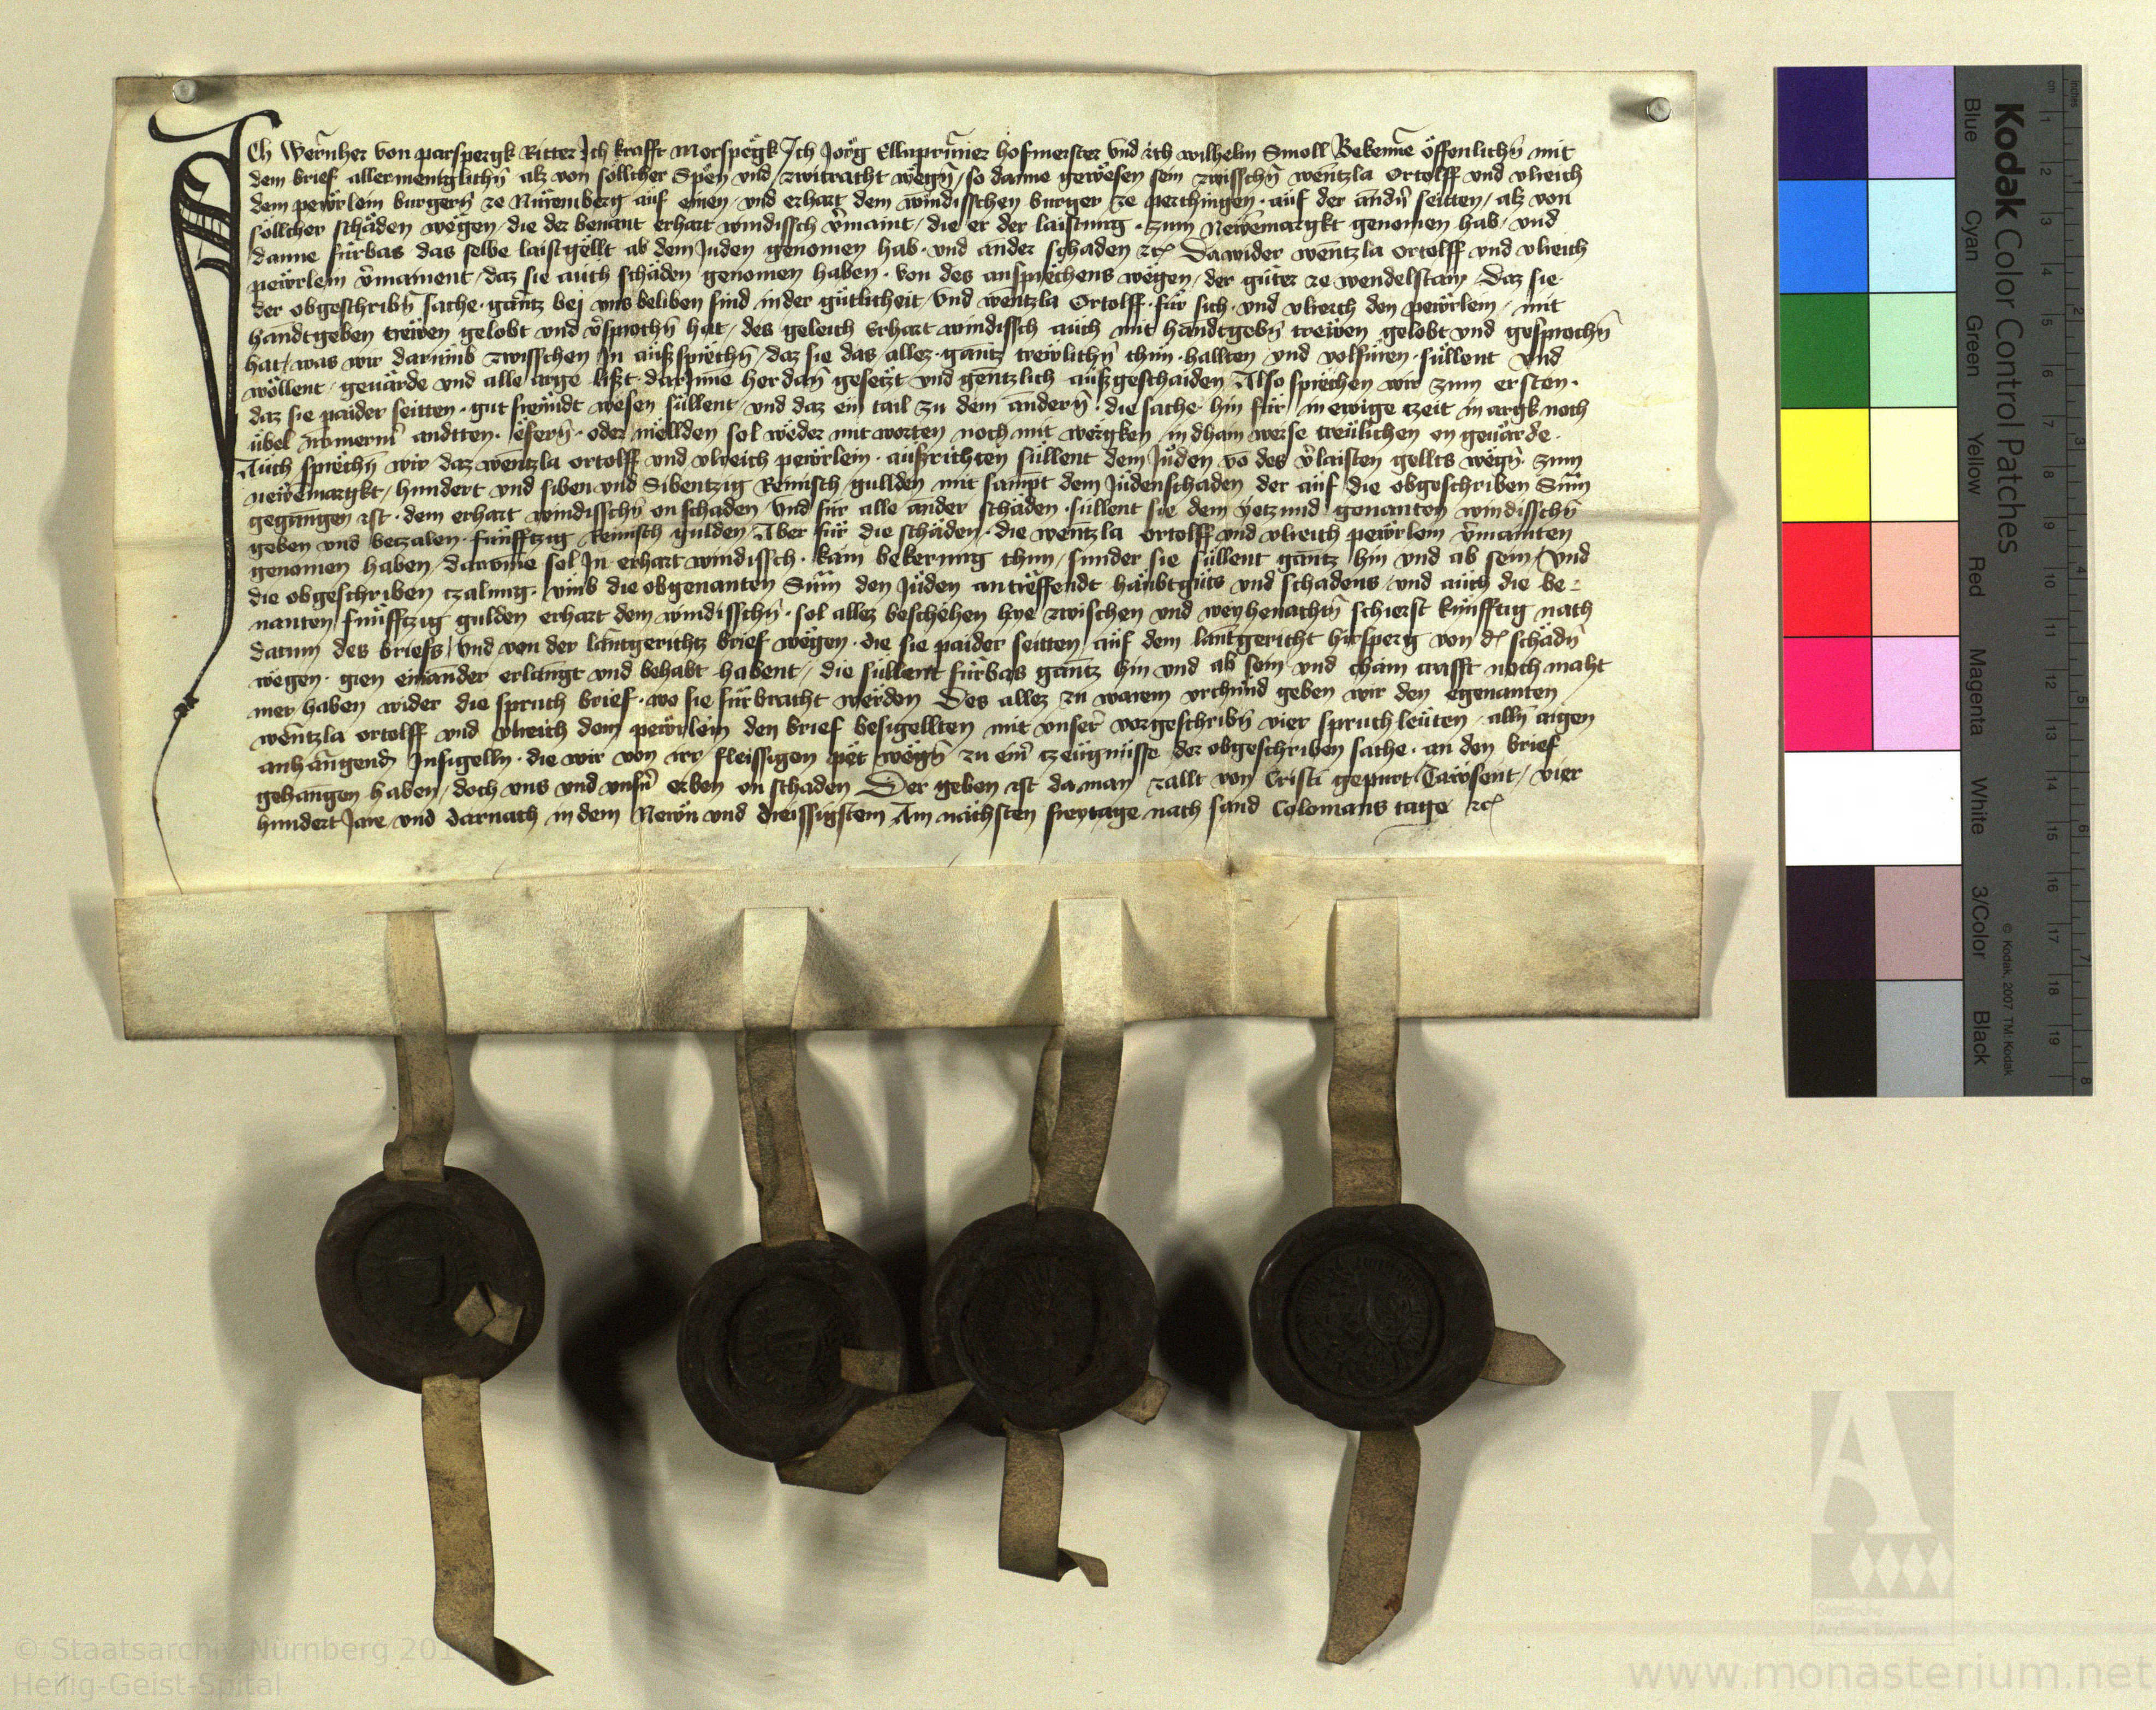 Ich Wernher von parspergk Ritter Ich krafft Morspegk Ich Jorg Ellaprunner hofmeister vnd ich wilhelm Smoll Bekenne offenlichn mit
dem brief allermeniglichn alz von sollicher Spen vnd zwitracht wegn so danne gewesen sein zwisschn wentzla Ortolff vnd vlreich
dem pewrlein burgern ze Nuremberg auf einen vnd erhart dem windisschen burger ze perchingen auf der andn seitten alz von
sollicher schaden wegen die der benant erhart windissch vmaint die er der laistung zum Newenmargkt genomen hab vnd
danne furbas das selbe laistgellt ab dem Juden genomen hab vnd ander schaden etc Dawider wentzla ortolff vnd vlreich
pewrlein vmainent daz sie auch schaden genomen haben von des ansprechens wegen der guter ze wendelstain Daz sie
der obgeschribn sache gantz bej vns beliben sind in der gutlicheit Vnd wentzla Ortolff fur sich vnd vlreich den pewrlein mit
handtgeben trewen gelobt vnd vsprochn hat des geleich Erhart windissch auch mit handtgebn trewen gelobt vnd gesprochn
hat was wir darumb zwisschen In aufzsprechn daz sie das allez gantz trewlichn thun hallten vnd volfuren sullent vnd
wollent geuarde vnd alle arge list darInne herdan gesetzt vnd gentzlich aufzgeschaiden Also sprechen wir zum ersten
daz sie paider seitten gut frewndt wesen sullent vnd daz ein tail zu dem andern die sache hin fur in ewige tzeit in argk noch
ubel nymerm andtten efern oder mellden sol weder mit worten noch mit wergken in dhain weise trewlichen on geuarde
Auch sprechn wir daz wentzla ortolff vnd vlreich pewrlein aufzrichten sullent dem Juden vo des vlaisten gellts wegn zum
newenmargkt hundert vnd siben vnd Sibentzig Reinisch gullden mit sampt dem Judenschaden der auf die obgeschriben Sum
gegangen ist dem erhart windisschn on schaden Vnd fur alle ander schaden sullent sie dem yetzund genanten windisschn
geben vnd betzalen funfftzig Reinisch gulden Aber fur die schaden die wentzla ortolff vnd vlreich pewrlein vmainten
genomen haben darume sol In erhart windissch kain bekerung thun sunder sie sullent gantz hin vnd ab sein Vnd
die obgeschriben tzalung vmb die obgenanten Sum den Juden antreffendt haubtguts vnd schadens vnd auch die be=
nanten funfftzig gulden erhart dem windisschn sol allez beschehen hye zwischen vnd weyhenachtn schierst kunfftig nach
datum des briefs Vnd von der lantgerichtz brief wegen die sie paider seitten auf dem lantgericht hirsperg von d schadn
wegen gien einander erlangt vnd behabt habent die sullent furbas gantz hin vnd ab sein vnd chain crafft noch maht
mer haben wider die spruch brief wo sie furbracht werden Des allez zu warem vrchund geben wir den egenanten
wentzla ortolff vnd vlreich dem pewrlein den brief besigellten mit vnser vorgeschribn vier spruchleuten alln aigen
anhangend Insigelln die wir von irr fleissigen pet wegn zu eim tzeugnusse der obgeschriben sache an den brief
gehangen haben doch vns vnd vnsn erben on schaden Der geben ist da man zallt von Cristi gepurt Tawsent vier
hundert Jare vnd darnach in dem Newn vnd dreissigistem Am nachsten freytage nach sand Colomans tage etc
Kodak Color Control Patches
Blue Cyan Green Yellow Red Magenta White 3/Color Black
© Kodak, 2007 TM: Kodak
© Staatsarchiv Nürnberg
Heilig-Geist-Spital
www.monasterium.net